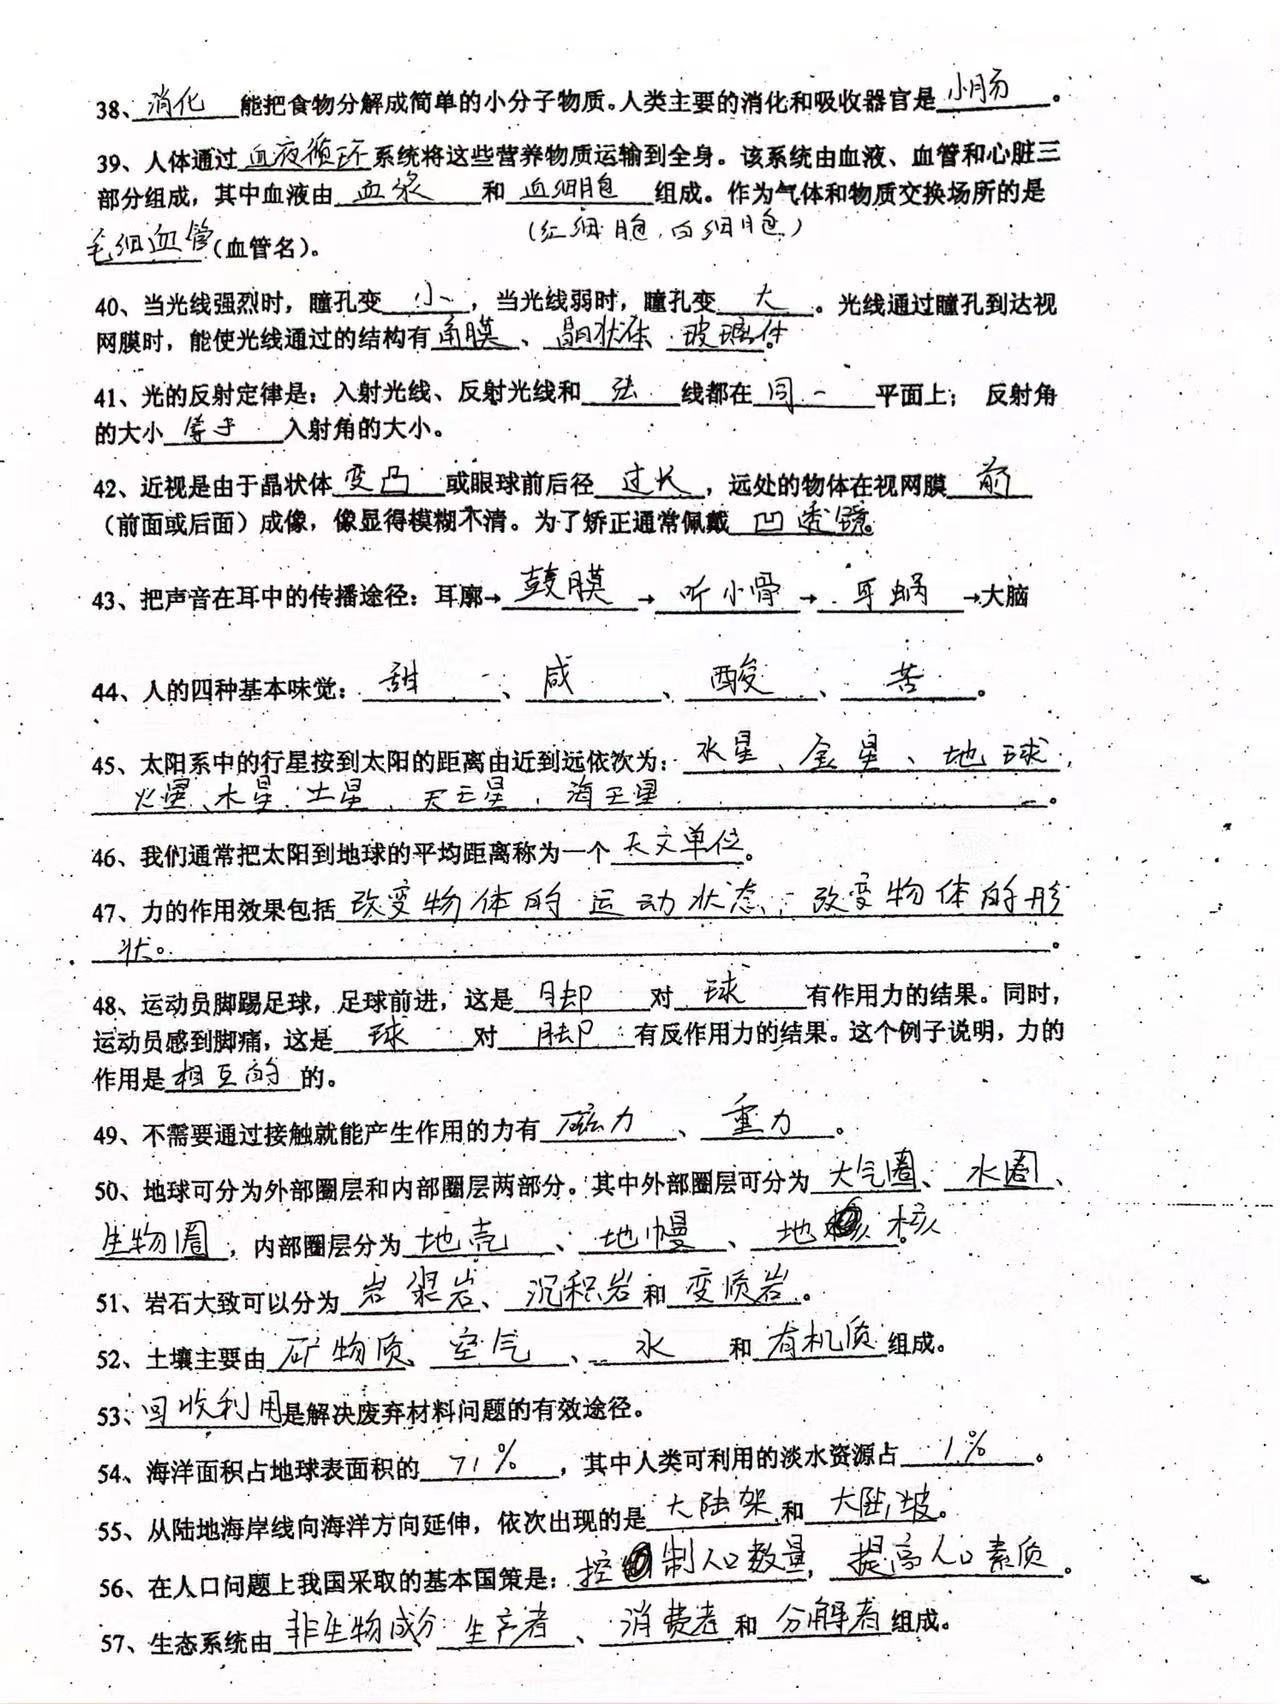 38、消化能把食物分解成简单的小分子物质。人类主要的消化和吸收器官是小肠。
39、人体通过血液循环系统将这些营养物质运输到全身。该系统由血液、血管和心脏三
部分组成，其中血液由血浆和血细胞组成。作为气体和物质交换场所的是
（红细胞、白细胞）
毛细血管（血管名）。
40、当光线强烈时，瞳孔变小，当光线弱时，瞳孔变大。光线通过瞳孔到达视
网膜时，能使光线通过的结构有角膜、晶状体、玻璃体。
41、光的反射定律是：入射光线、反射光线和法线都在同一平面上； 反射角
的大小等于入射角的大小。
42、近视是由于晶状体变凸或眼球前后径过长，远处的物体在视网膜前
（前面或后面）成像，像显得模糊不清。为了矫正通常佩戴凹透镜。
43、把声音在耳中的传播途径：耳廓→鼓膜→听小骨→耳蜗→大脑
44、人的四种基本味觉：甜、咸、酸、苦。
45、太阳系中的行星按到太阳的距离由近到远依次为：水星、金星、地球、
火星、木星、土星、天王星、海王星。
46、我们通常把太阳到地球的平均距离称为一个天文单位。
47、力的作用效果包括改变物体的运动状态；改变物体的形
状。。
48、运动员脚踢足球，足球前进，这是脚对球有作用力的结果。同时，
运动员感到脚痛，这是球对脚有反作用力的结果。这个例子说明，力的
作用是相互的的。
49、不需要通过接触就能产生作用的力有磁力、重力。
50、地球可分为外部圈层和内部圈层两部分。其中外部圈层可分为大气圈、水圈、
生物圈，内部圈层分为地壳、地幔、地核。
51、岩石大致可以分为岩浆岩、沉积岩和变质岩。
52、土壤主要由矿物质、空气、水和有机质组成。
53、回收利用是解决废弃材料问题的有效途径。
54、海洋面积占地球表面积的71%，其中人类可利用的淡水资源占1%。
55、从陆地海岸线向海洋方向延伸，依次出现的是大陆架和大陆坡。
56、在人口问题上我国采取的基本国策是：控制人口数量，提高人口素质。
57、生态系统由非生物成分、生产者、消费者和分解者组成。